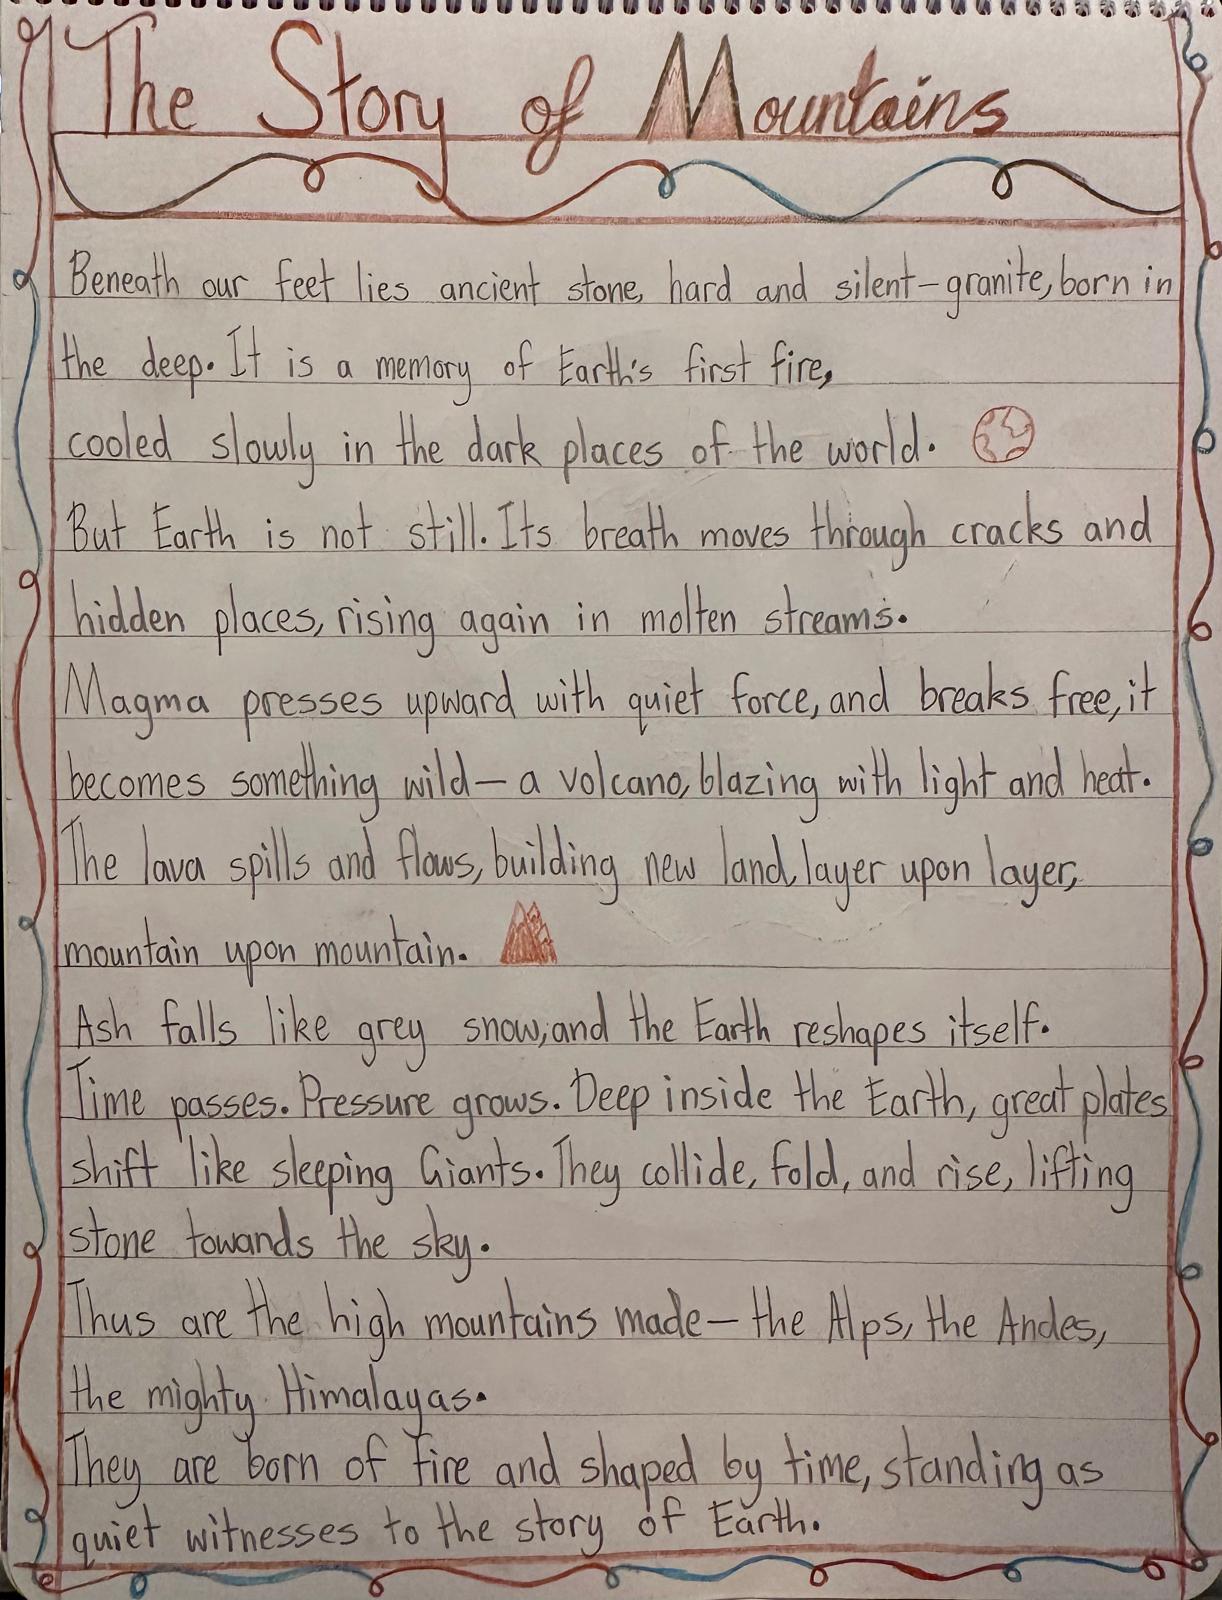 The Story of Mountains
Beneath our feet lies ancient stone, hard and silent—granite, born in
the deep. It is a memory of Earth's first fire,
cooled slowly in the dark places of the world.
But Earth is not still. Its breath moves through cracks and
hidden places, rising again in molten streams.
Magma presses upward with quiet force, and breaks free, it
becomes something wild—a volcano, blazing with light and heat.
The lava spills and flows, building new land, layer upon layer,
mountain upon mountain.
Ash falls like grey snow, and the Earth reshapes itself.
Time passes. Pressure grows. Deep inside the Earth, great plates
shift like sleeping Giants. They collide, fold, and rise, lifting
stone towands the sky.
Thus are the high mountains made—the Alps, the Andes,
the mighty Himalayas.
They are born of fire and shaped by time, standing as
quiet witnesses to the story of Earth.